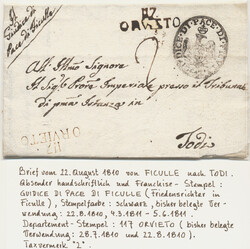 Giudice di
Pace di Ficulle
117
ORVIETO
GIUDICE DI PACE DI FICULLE
All' Illmo Signore
Il Sigr Procre Imperiale presso il Tribunale
di prima Istanza in
Todi
117
ORVIETO
Brief vom 22. August 1810 von FICULLE nach TODI.
Absender handschriftlich und Franchise-Stempel:
GIUDICE DI PACE DI FICULLE (Friedensrichter in
Ficulle), Stempelfarbe: schwarz, bisher belegte Ver-
wendung: 22.8.1810, 4.3.1811 - 5.6.1811.
Departement-Stempel: 117 ORVIETO (bisher belegte
Verwendung: 28.7.1810 und 22.8.1810).
Taxvermerk "2".